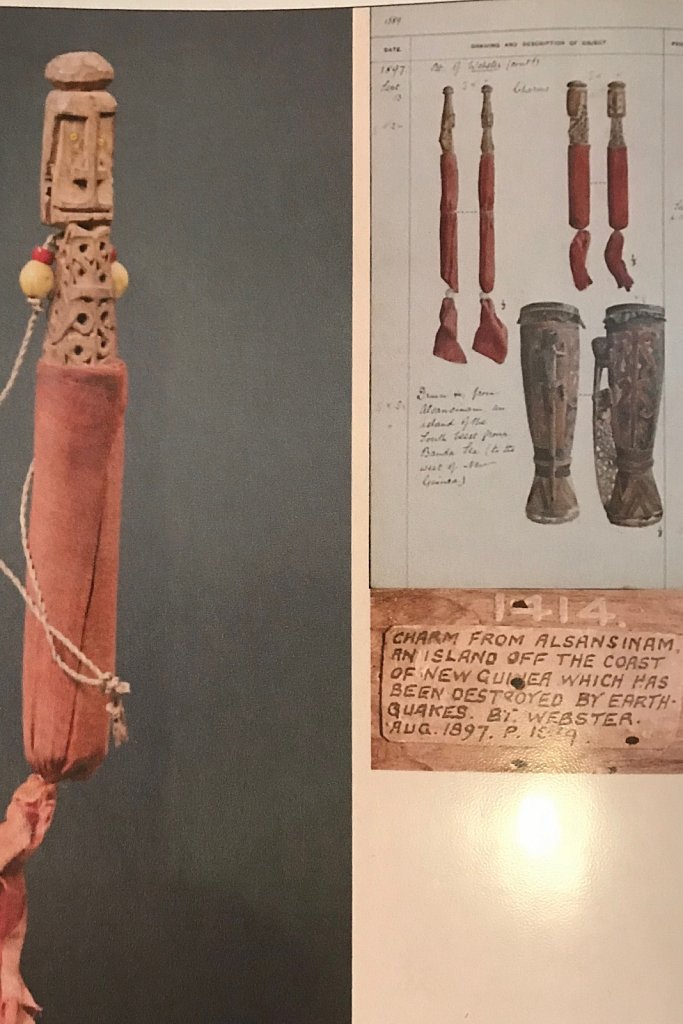 1889
DATE.
DRAWING AND DESCRIPTION OF OBJECT
1897
Bt. of Webster (contd)
Sept
13
Charms
Drum &c from
Alsansinam an
island of the
South West from
Banda Sea (to the
west of New
Guinea)
1414.
CHARM FROM ALSANSINAM,
AN ISLAND OFF THE COAST
OF NEW GUINEA WHICH HAS
BEEN DESTROYED BY EARTH-
QUAKES. BY. WEBSTER.
AUG. 1897. P. 1889.